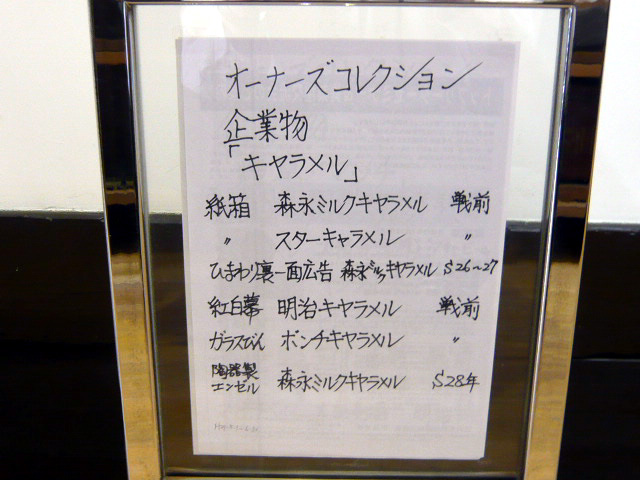 オーナーズコレクション
企業物
「キャラメル」
紙箱 森永ミルクキャラメル 戦前
〃 スターキャラメル 〃
ひまわり裏一面広告 森永ミルクキャラメル S26~27
紅白幕 明治キャラメル 戦前
ガラスびん ポンチキャラメル 〃
陶器製エンゼル 森永ミルクキャラメル S28年